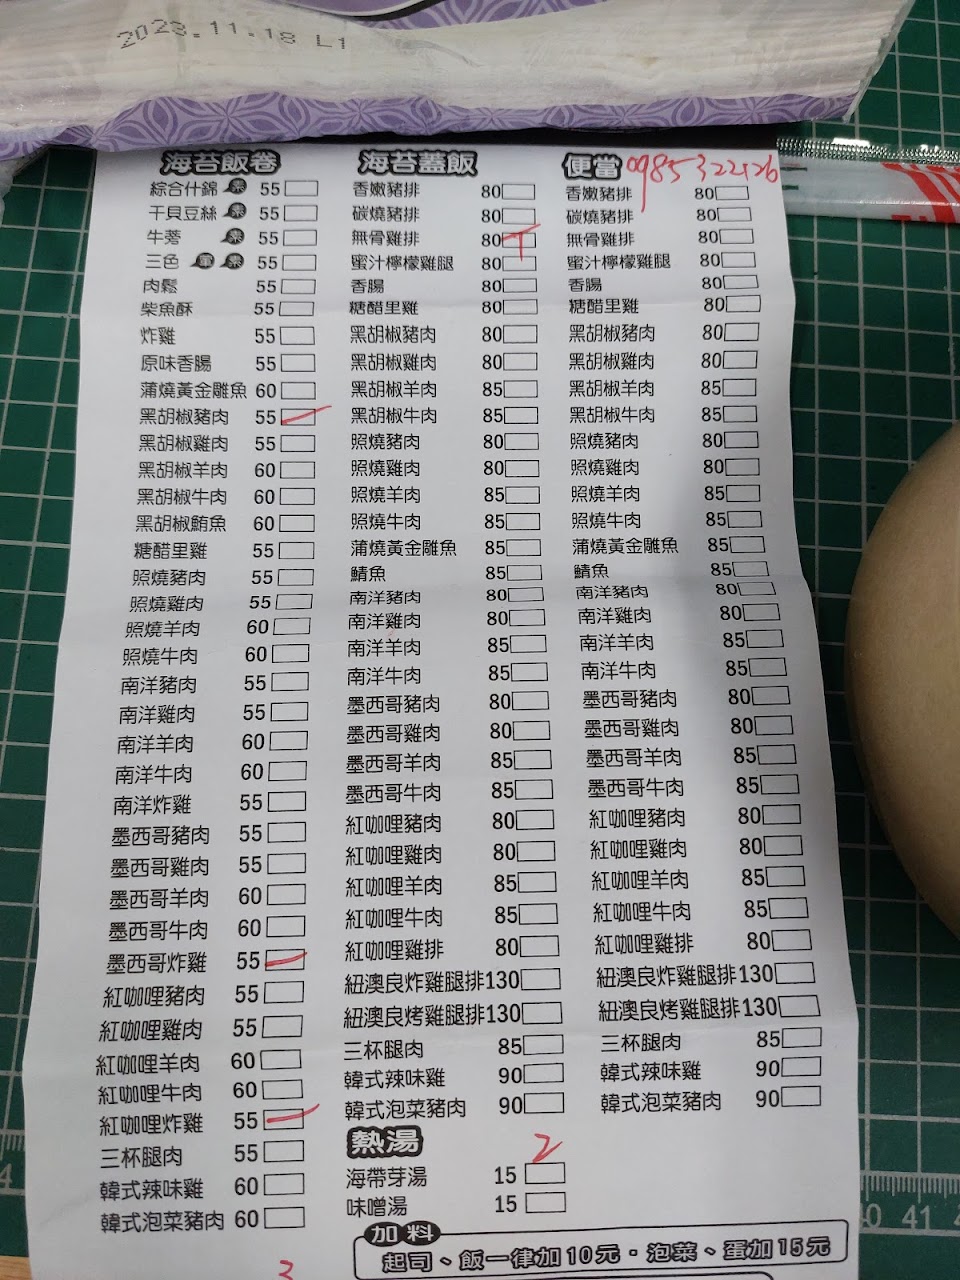 2023.11.18 L1
海苔飯卷
綜合什錦 素 55
干貝豆絲 素 55
牛蒡 素 55
三色 素 55
肉鬆 55
柴魚酥 55
炸雞 55
原味香腸 55
蒲燒黃金雕魚 60
黑胡椒豬肉 55
黑胡椒雞肉 55
黑胡椒羊肉 60
黑胡椒牛肉 60
黑胡椒鮪魚 60
糖醋里雞 55
照燒豬肉 55
照燒雞肉 55
照燒羊肉 60
照燒牛肉 60
南洋豬肉 55
南洋雞肉 55
南洋羊肉 60
南洋牛肉 60
南洋炸雞 55
墨西哥豬肉 55
墨西哥雞肉 55
墨西哥羊肉 60
墨西哥牛肉 60
墨西哥炸雞 55
紅咖哩豬肉 55
紅咖哩雞肉 55
紅咖哩羊肉 60
紅咖哩牛肉 60
紅咖哩炸雞 55
三杯腿肉 55
韓式辣味雞 60
韓式泡菜豬肉 60
3
海苔蓋飯
香嫩豬排 80
碳燒豬排 80
無骨雞排 80
蜜汁檸檬雞腿 80
香腸 80
糖醋里雞 80
黑胡椒豬肉 80
黑胡椒雞肉 80
黑胡椒羊肉 85
黑胡椒牛肉 85
照燒豬肉 80
照燒雞肉 80
照燒羊肉 85
照燒牛肉 85
蒲燒黃金雕魚 85
鯖魚 85
南洋豬肉 80
南洋雞肉 80
南洋羊肉 85
南洋牛肉 85
墨西哥豬肉 80
墨西哥雞肉 80
墨西哥羊肉 85
墨西哥牛肉 85
紅咖哩豬肉 80
紅咖哩雞肉 80
紅咖哩羊肉 85
紅咖哩牛肉 85
紅咖哩雞排 80
紐澳良炸雞腿排130
紐澳良烤雞腿排130
三杯腿肉 85
韓式辣味雞 90
韓式泡菜豬肉 90
熱湯
2
海帶芽湯 15
味噌湯 15
便當 0985322126
香嫩豬排 80
碳燒豬排 80
無骨雞排 80
蜜汁檸檬雞腿 80
香腸 80
糖醋里雞 80
黑胡椒豬肉 80
黑胡椒雞肉 80
黑胡椒羊肉 85
黑胡椒牛肉 85
照燒豬肉 80
照燒雞肉 80
照燒羊肉 85
照燒牛肉 85
蒲燒黃金雕魚 85
鯖魚 85
南洋豬肉 80
南洋雞肉 80
南洋羊肉 85
南洋牛肉 85
墨西哥豬肉 80
墨西哥雞肉 80
墨西哥羊肉 85
墨西哥牛肉 85
紅咖哩豬肉 80
紅咖哩雞肉 80
紅咖哩羊肉 85
紅咖哩牛肉 85
紅咖哩雞排 80
紐澳良炸雞腿排130
紐澳良烤雞腿排130
三杯腿肉 85
韓式辣味雞 90
韓式泡菜豬肉 90
加料
起司、飯一律加10元·泡菜、蛋加15元
4
40 41